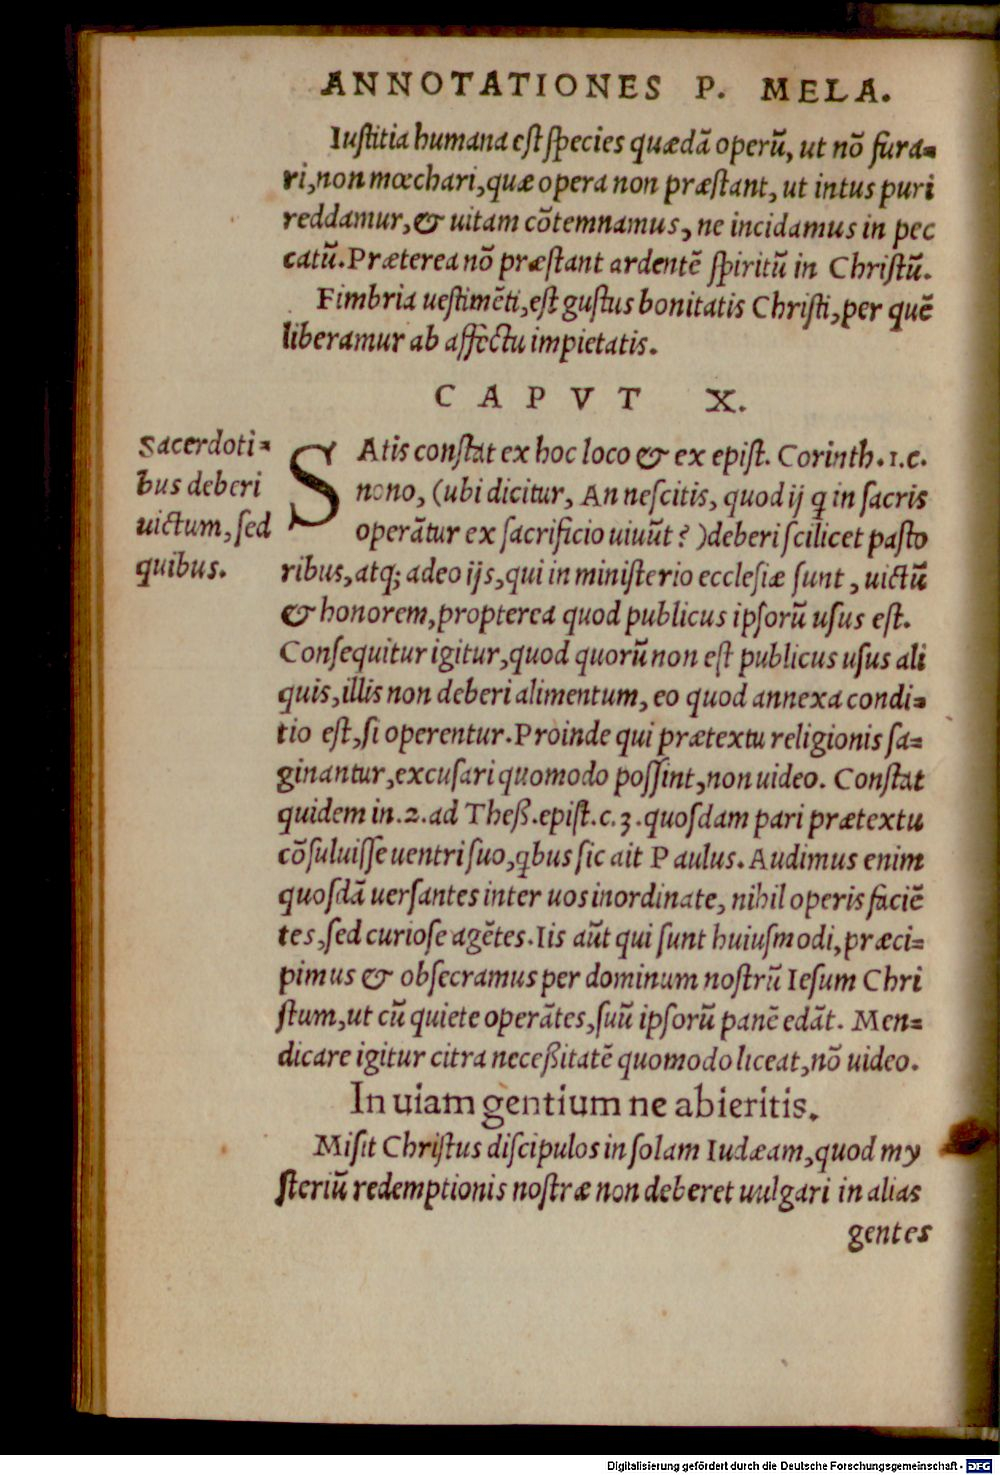 ANNOTATIONES P. MELA.
Iuſtitia humana eſt ſpecies quædã operũ, ut nõ fura-
ri, non mœchari, quæ opera non præſtant, ut intus puri
reddamur, & uitam cõtemnamus, ne incidamus in pec
catũ. Præterea nõ præſtant ardentẽ ſpiritũ in Chriſtũ.
Fimbria ueſtimẽti, eſt guſtus bonitatis Chriſti, per quẽ
liberamur ab affectu impietatis.
CAPVT X.
Sacerdoti-
bus deberi
uictum, ſed
quibus.
SAtis conſtat ex hoc loco & ex epiſt. Corinth. 1. c.
nono, (ubi dicitur, An neſcitis, quod ij ꝗ in ſacris
operãtur ex ſacrificio uiuũt?) deberi ſcilicet paſto
ribus, atq; adeo ijs, qui in miniſterio eccleſiæ ſunt, uictũ
& honorem, propterea quod publicus ipſorũ uſus eſt.
Conſequitur igitur, quod quorũ non eſt publicus uſus ali
quis, illis non deberi alimentum, eo quod annexa condi-
tio eſt, ſi operentur. Proinde qui prætextu religionis ſa-
ginantur, excuſari quomodo poſſint, non uideo. Conſtat
quidem in .2. ad Theß. epiſt. c. 3. quoſdam pari prætextu
cõſuluiſſe uentri ſuo, ꝗbus ſic ait Paulus. Audimus enim
quoſdã uerſantes inter uos inordinate, nihil operis faciẽ
tes, ſed curioſe agẽtes. Iis aũt qui ſunt huiuſmodi, præci-
pimus & obſecramus per dominum noſtrũ Ieſum Chri
ſtum, ut cũ quiete operãtes, ſuũ ipſorũ panẽ edãt. Men-
dicare igitur citra neceßitatẽ quomodo liceat, nõ uideo.
In uiam gentium ne abieritis.
Miſit Chriſtus diſcipulos in ſolam Iudæam, quod my
ſteriũ redemptionis noſtræ non deberet uulgari in alias
gentes
Digitalisierung gefördert durch die Deutsche Forschungsgemeinschaft - DFG